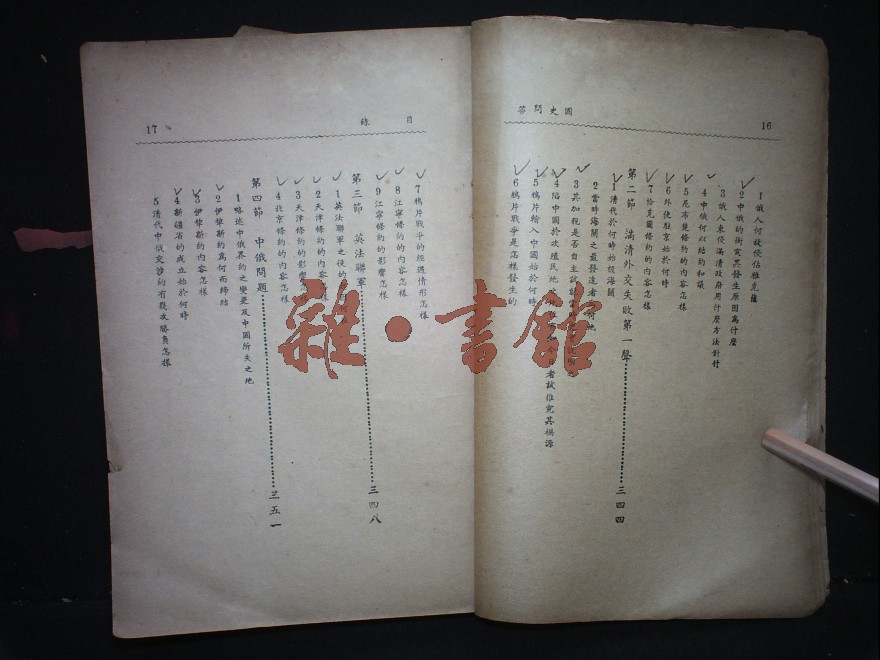 國史問答
16
1 俄人何從侵佔雅克薩
2 中俄的衝突其發生原因為什麼
3 俄人東侵滿清政府用什麼方法對付
4 中俄何以結約和議
5 尼布楚條約的內容怎樣
6 外使駐京始於何時
7 恰克圖條約的內容怎樣
第二節 滿清外交失敗第一聲 三四四
1 清代於何時始設海關
2 當時海關之最發達者為何地
3 其加稅是否自主試
4 陷中國於次殖民地 者試推究其禍源
5 鴉片輸入中國始於何時
6 鴉片戰爭是怎樣發生的
目錄
17
7 鴉片戰爭的經過情形怎樣
8 江寧條約的內容怎樣
9 江寧條約的影響怎樣
第三節 英法聯軍 三四八
1 英法聯軍之役的
2 天津條約的內容怎樣
3 天津條約的影響
4 北京條約的內容怎樣
第四節 中俄問題 三五一
1 略述中俄界約之變更及中國所失之地
2 伊犂新約為何而締結
3 伊犂新約的內容怎樣
4 新疆省的成立始於何時
5 清代中俄交涉約有幾次勝負怎樣
雜·書館